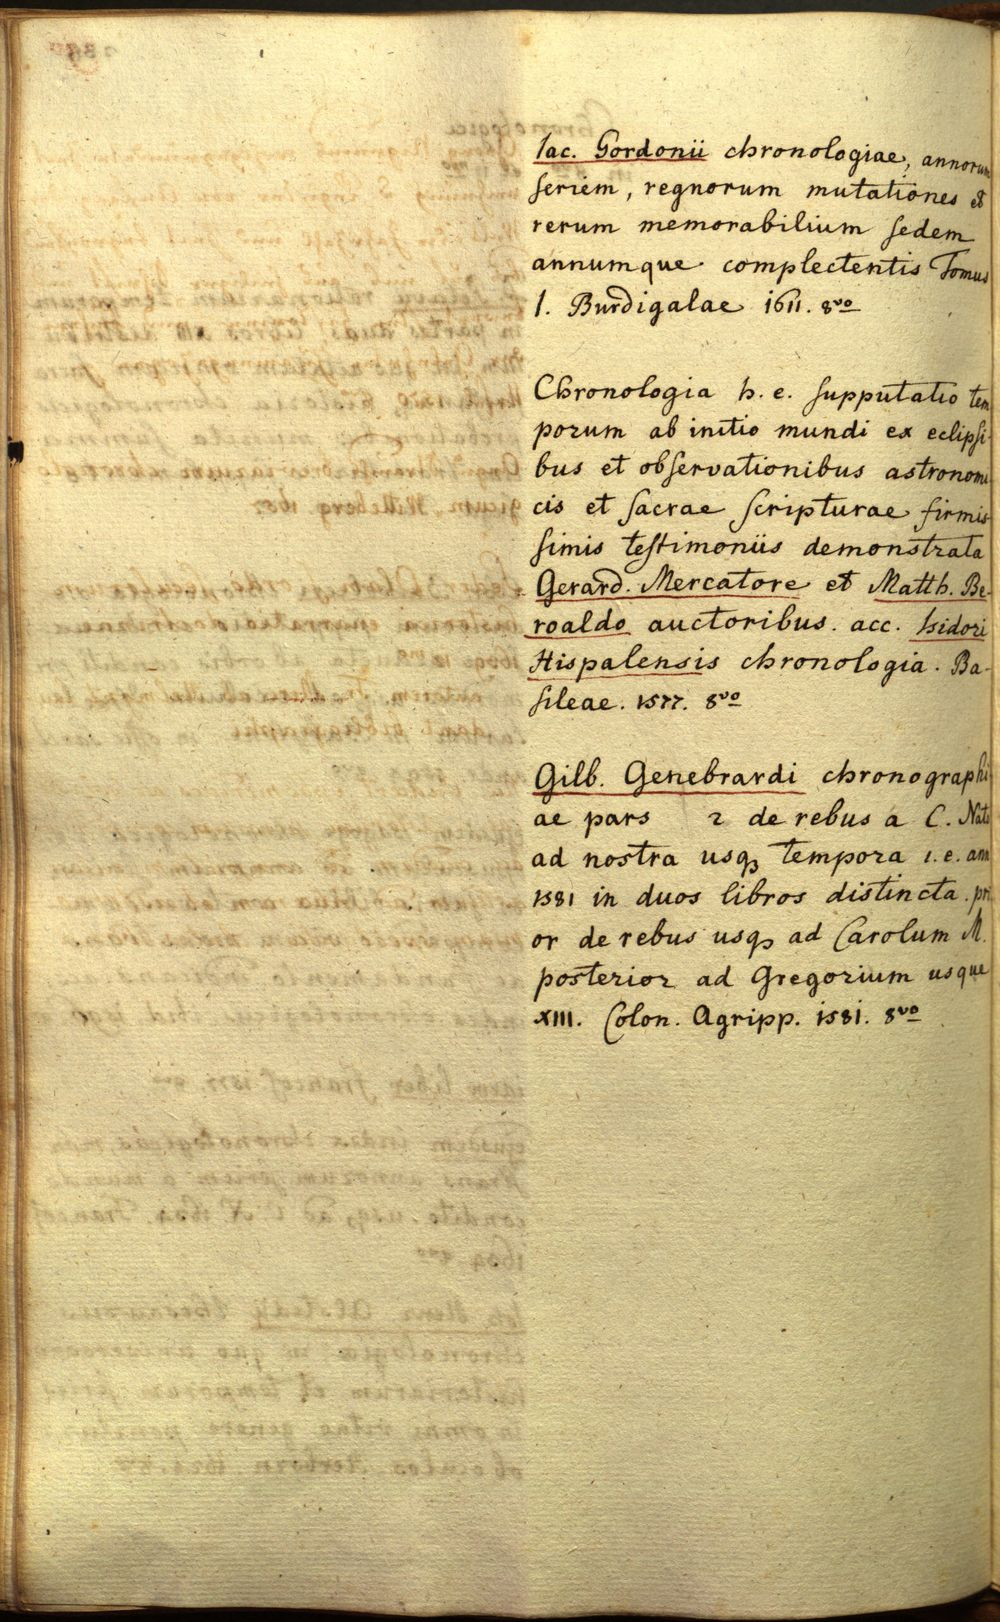 Iac. Gordonii chronologiae, annorum
seriem, regnorum mutationes et
rerum memorabilium sedem
annumque complectentis Tomus
1. Burdigalae 1611. 8vo
Chronologia h. e. supputatio tem
porum ab initio mundi ex eclipsi-
bus et observationibus astronomi
cis et sacrae scripturae firmis
simis testimoniis demonstrata
Gerard. Mercatore et Matth. Be-
roaldo auctoribus. acc. Isidori
Hispalensis chronologia. Ba-
sileae. 1577. 8vo
Gilb. Genebrardi chronographi
ae pars 2 de rebus a C. Nato
ad nostra usq, tempora i. e. ann
1581 in duos libros distincta. pri
or de rebus usq, ad Carolum M.
posterior ad Gregorium usque
XIII. Colon. Agripp. 1581. 8vo